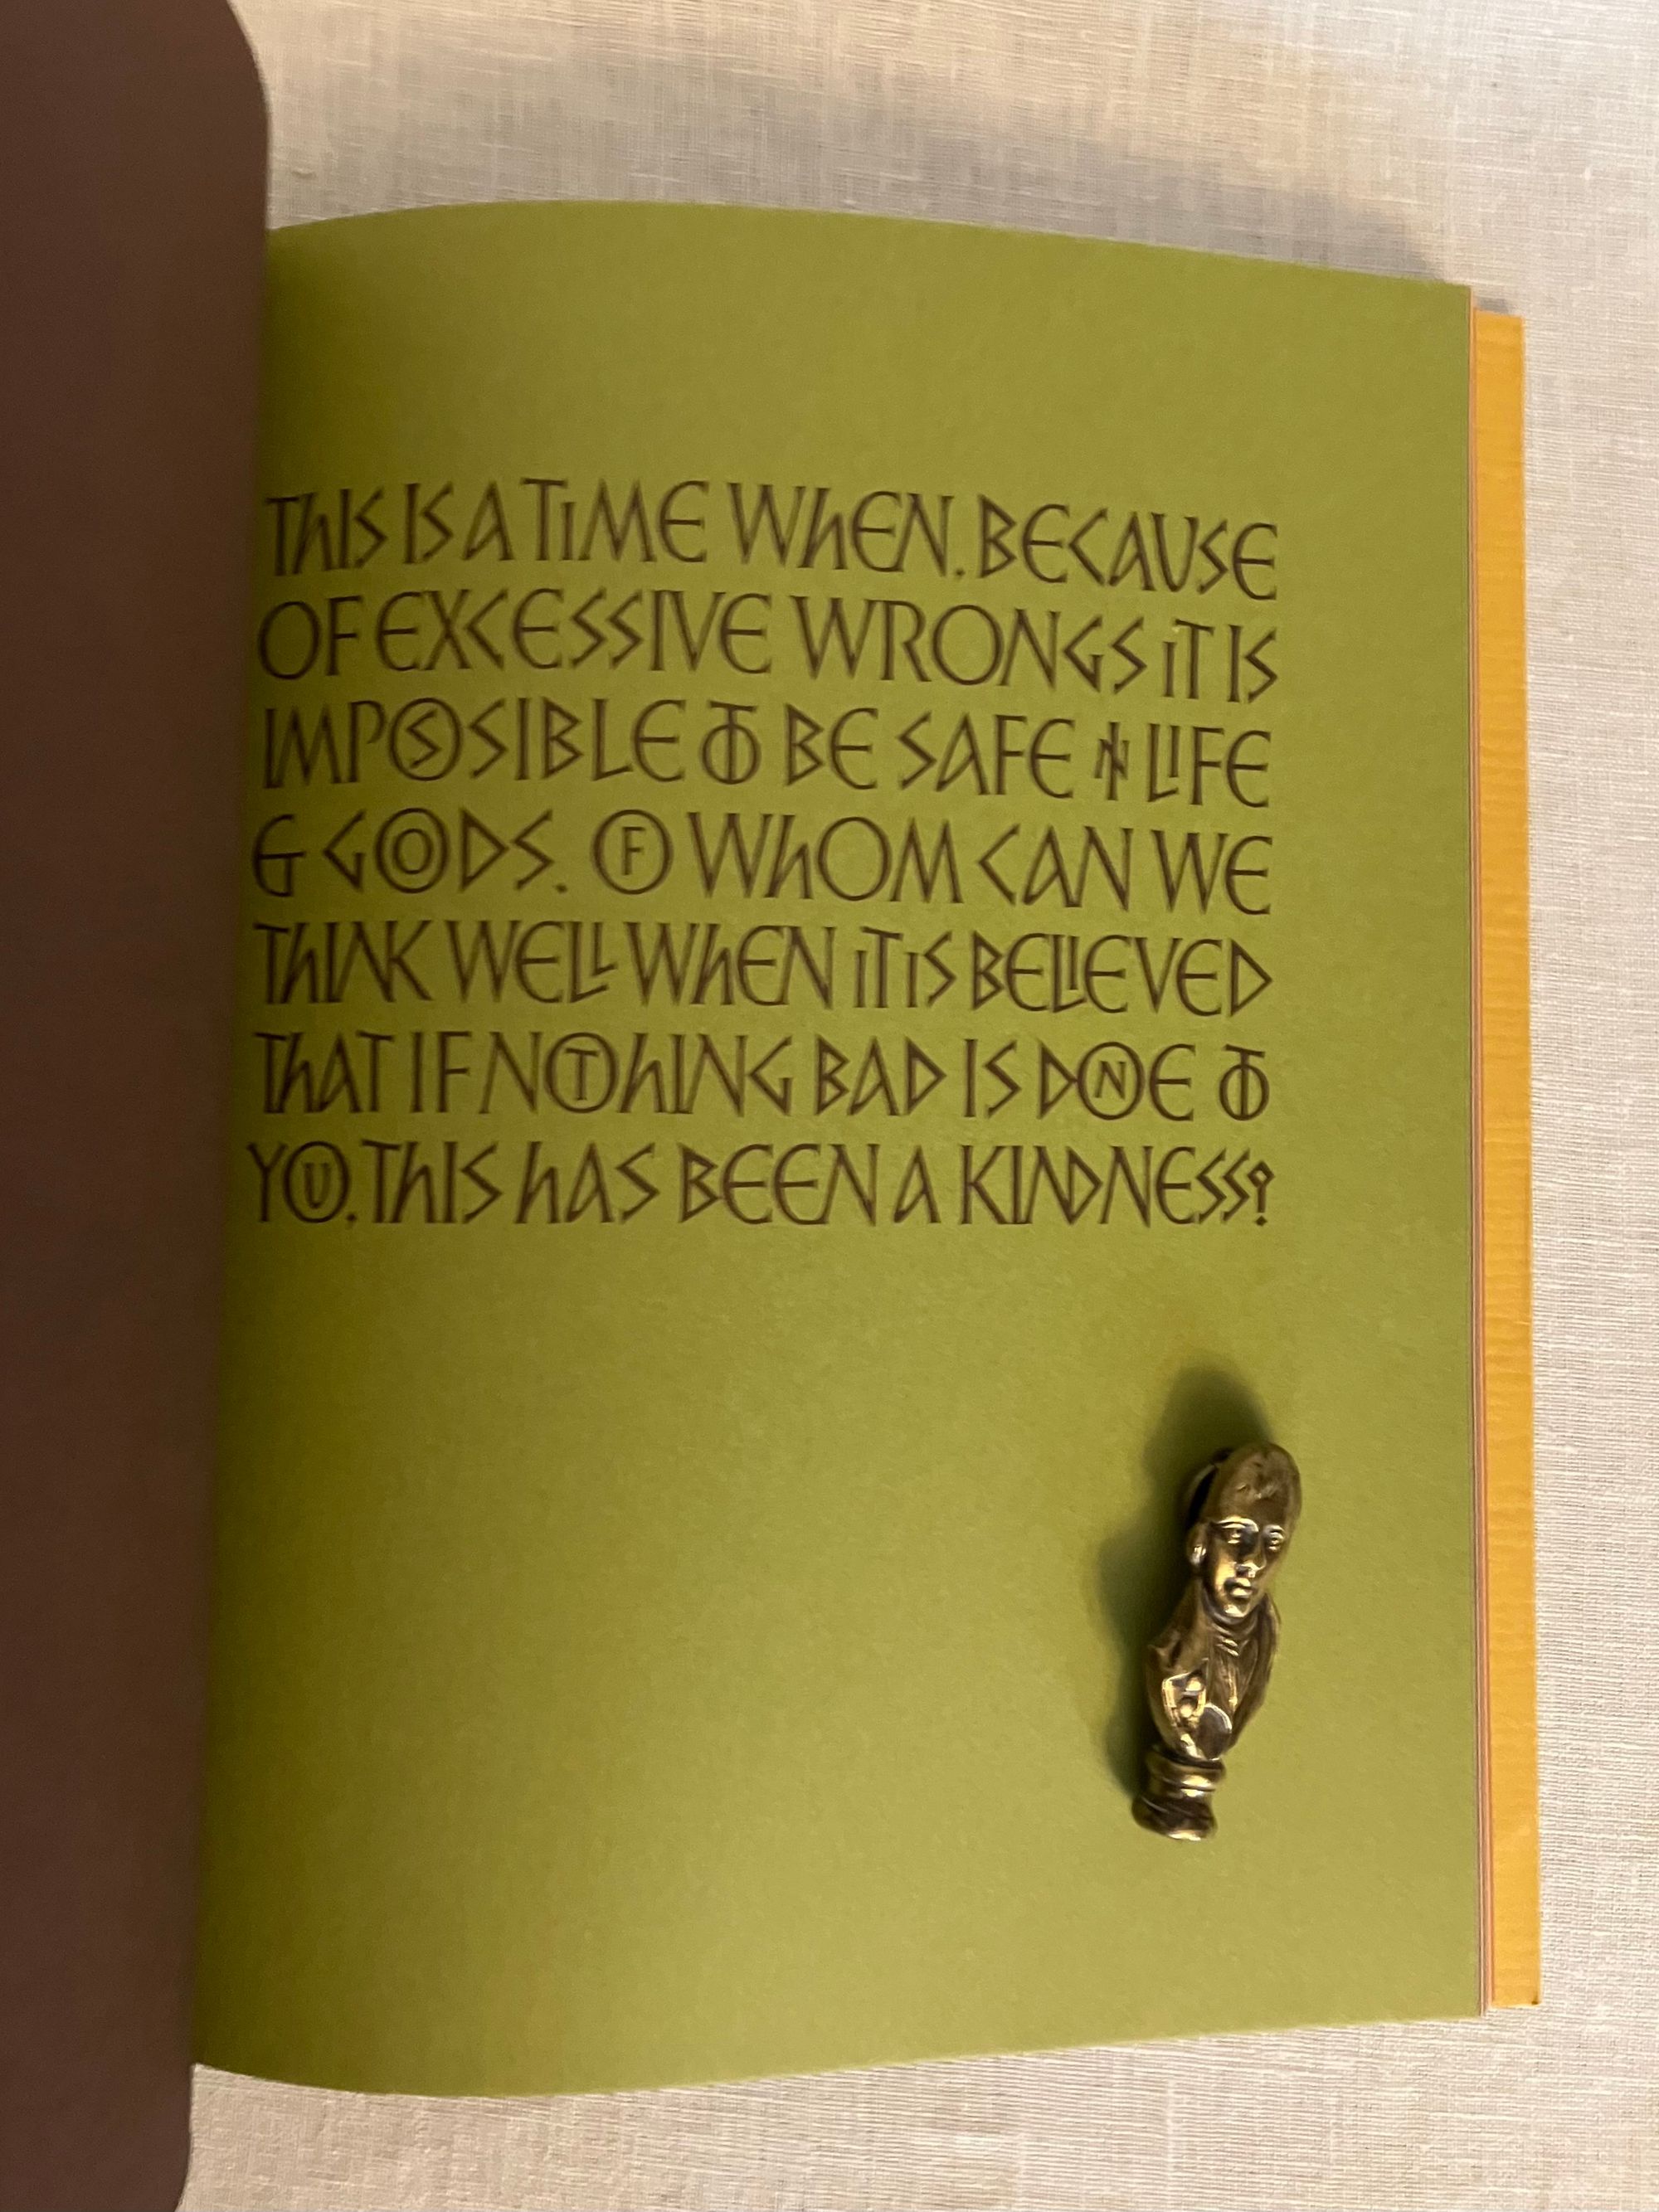 THIS IS A TIME WHEN, BECAUSE
OF EXCESSIVE WRONGS IT IS
IMPOSSIBLE TO BE SAFE IN LIFE
& GOODS. OF WHOM CAN WE
THINK WELL WHEN IT IS BELIEVED
THAT IF NOTHING BAD IS DONE TO
YOU, THIS HAS BEEN A KINDNESS?